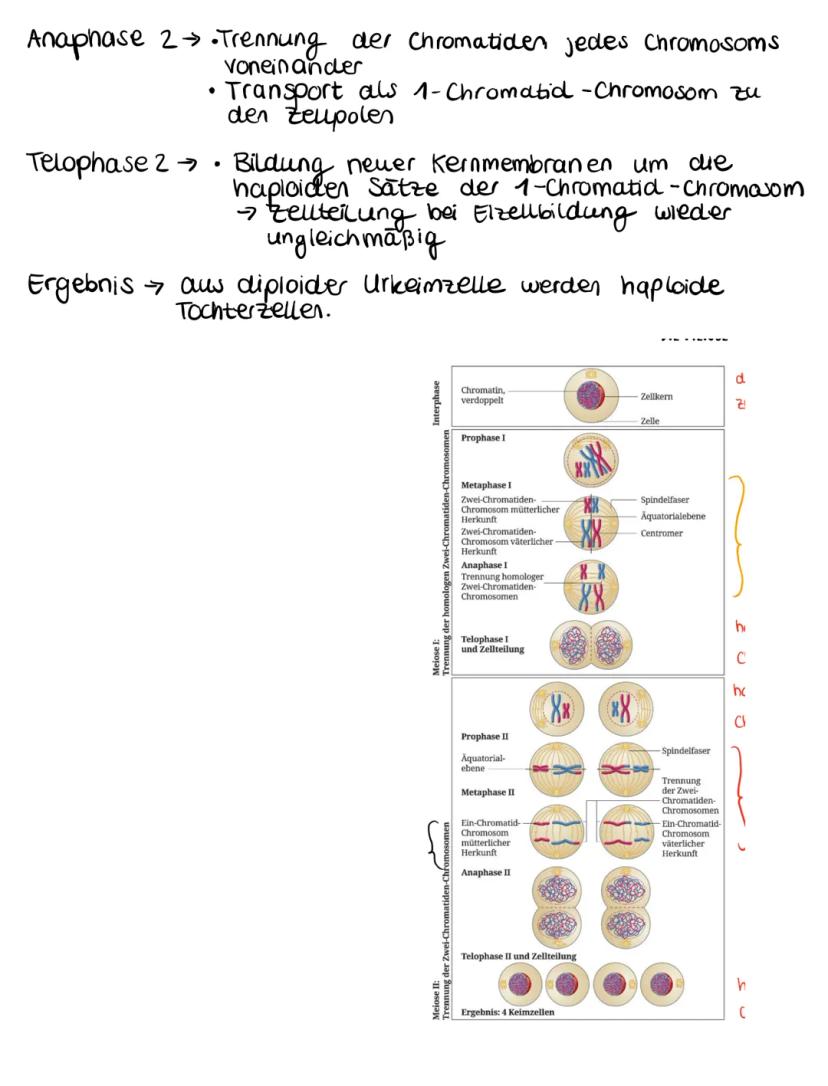 Anaphase 2 → • Trennung der Chromatiden jedes Chromosoms
voneinander
• Transport als 1-Chromatid-Chromosom zu
den Zellpolen
Telophase 2 → • Bildung neuer Kernmembranen um die
haploiden Sätze der 1-Chromatid-Chromosom
→ Zellteilung bei Eizellbildung wieder
ungleichmäßig
Ergebnis → aus diploider Urkeimzelle werden haploide
Tochterzellen.
Interphase
Chromatin,
verdoppelt
Zellkern
Zelle
Meiose I:
Trennung der homologen Zwei-Chromatiden-Chromosomen
Prophase I
Metaphase I
Zwei-Chromatiden-
Chromosom mütterlicher
Herkunft
Zwei-Chromatiden-
Chromosom väterlicher
Herkunft
Spindelfaser
Äquatorialebene
Centromer
Anaphase I
Trennung homologer
Zwei-Chromatiden-
Chromosomen
Telophase I
und Zellteilung
Meiose II:
Trennung der Zwei-Chromatiden-Chromosomen
Prophase II
Äquatorial-
ebene
Spindelfaser
Metaphase II
Trennung
der Zwei-
Chromatiden-
Chromosomen
Ein-Chromatid-
Chromosom
mütterlicher
Herkunft
Ein-Chromatid-
Chromosom
väterlicher
Herkunft
Anaphase II
Telophase II und Zellteilung
Ergebnis: 4 Keimzellen